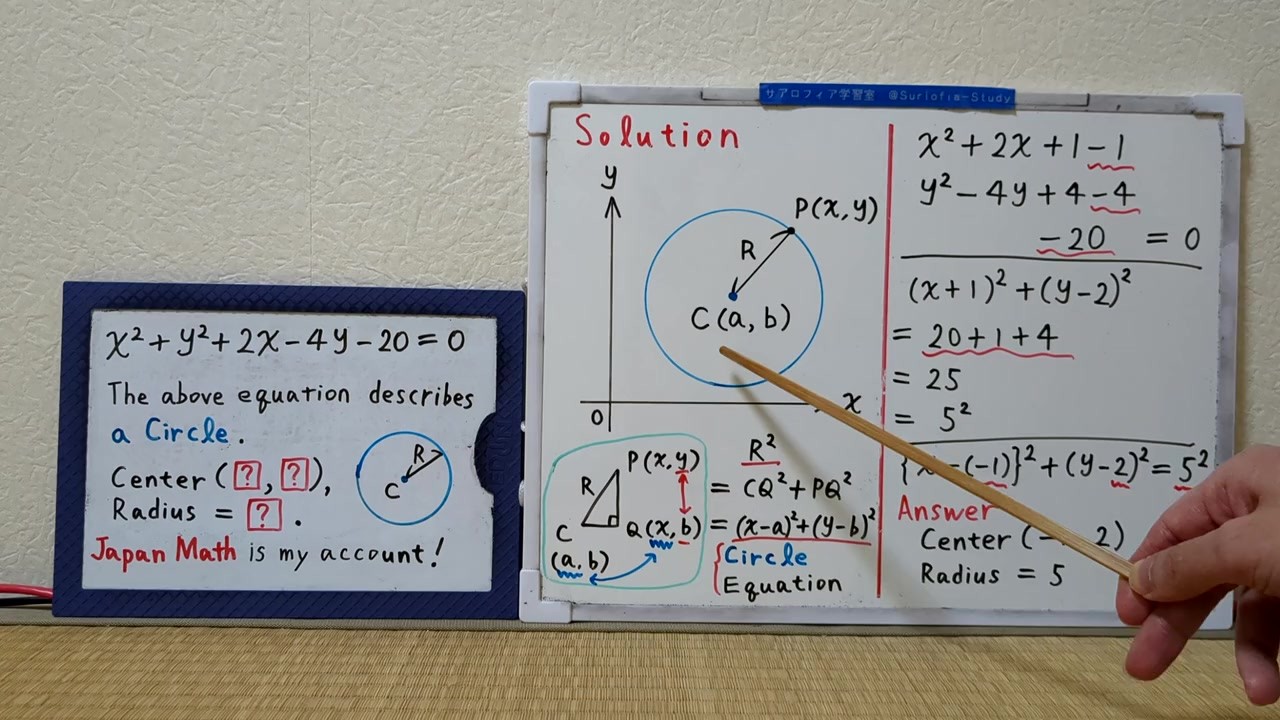 x² + y² + 2x − 4y − 20 = 0
The above equation describes
a Circle.
Center (?, ?),
Radius = ?.
R
C
Japan Math is my account!
サアロフィア学習室 @Suriofia-Study
Solution
y
P(x, y)
R
C(a, b)
0
x
P(x, y)
R
C
Q(x, b)
(a, b)
R²
= CQ² + PQ²
= (x−a)² + (y−b)²
Circle
Equation
x² + 2x + 1 − 1
y² − 4y + 4 − 4
−20 = 0
(x+1)² + (y−2)²
= 20 + 1 + 4
= 25
= 5²
{x−(−1)}² + (y−2)² = 5²
Answer
Center (− 2)
Radius = 5